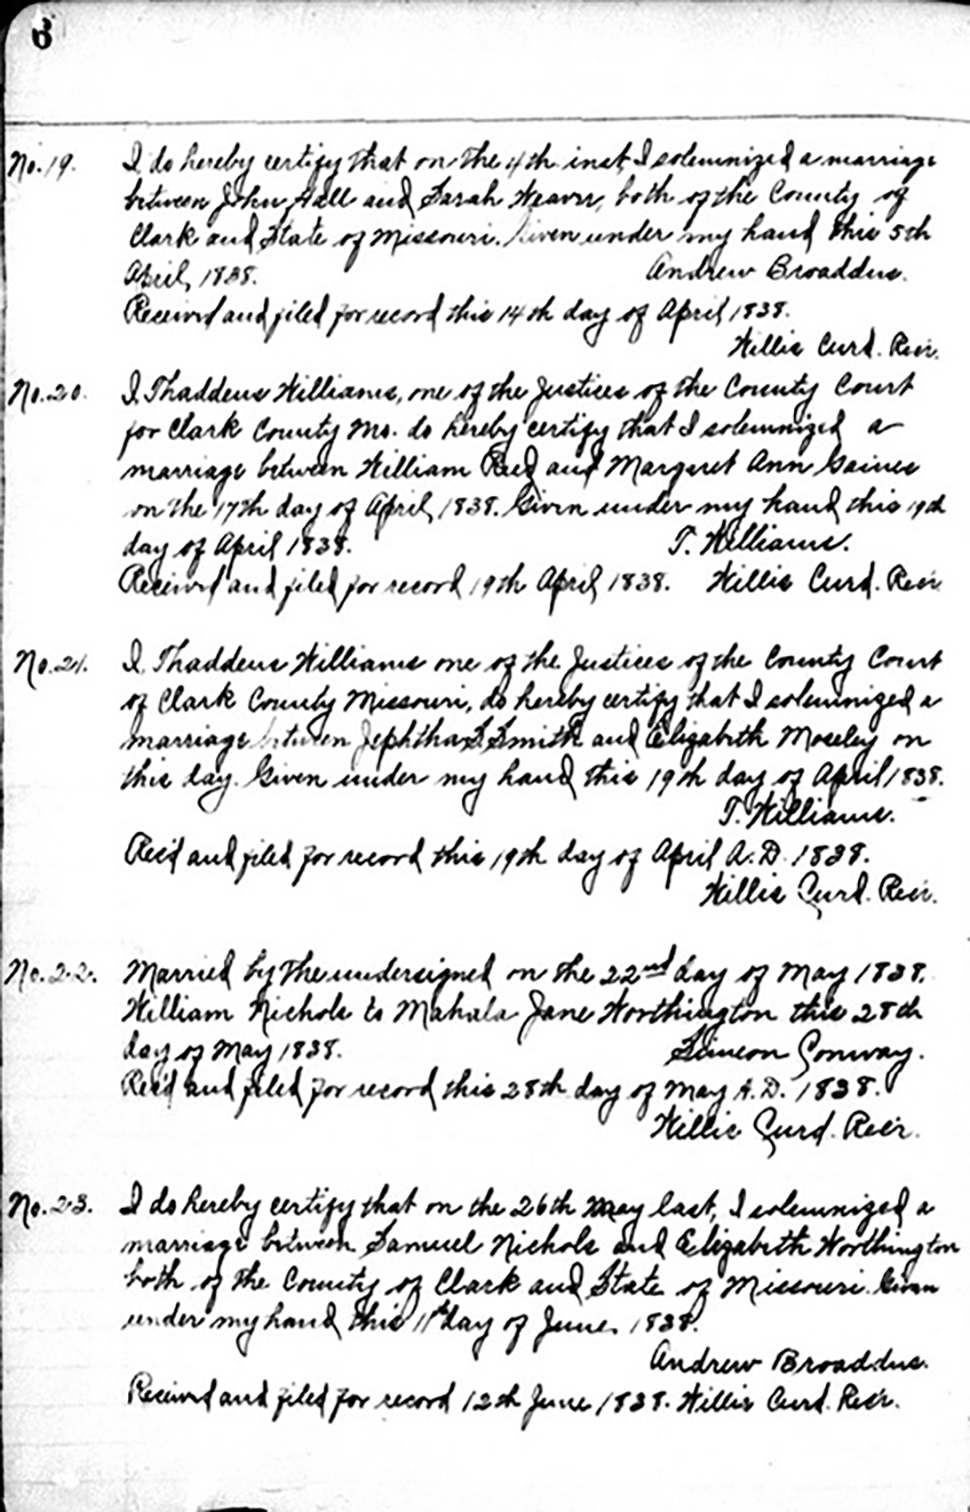 6
No. 19. I do hereby certify that on the 4th inst, I solemnized a marriage
between John Hall and Sarah Weaver, both of the County of
Clark and State of Missouri. Given under my hand this 5th
April, 1838. Andrew Broaddus.
Received and filed for record this 14th day of April 1838.
Willis Curd. Recr.
No. 20. I, Thaddeus Williams, one of the Justices of the County Court
for Clark County Mo. do hereby certify that I solemnized a
marriage between William Reed and Margaret Ann Gaines
on the 17th day of April, 1838. Given under my hand, this 19th
day of April 1838. T. Williams.
Received and filed for record 19th April, 1838. Willis Curd. Recr
No. 21. I, Thaddeus Williams one of the Justices of the County Court
of Clark County Missouri, do hereby certify that I solemnized a
marriage between Jephtha S. Smith and Elizabeth Moseley on
this day. Given under my hand this 19th day of April 1838.
T. Williams.
Rec'd and filed for record this 19th day of April A.D. 1838.
Willis Curd. Recr.
No. 22. Married by the undersigned on the 22nd day of May 1838.
William Nichols to Mahala Jane Worthington this 28th
day of May 1838. Simeon Conway.
Rec'd and filed for record this 28th day of May A.D. 1838.
Willis Curd. Recr.
No. 23. I do hereby certify that on the 26th May last, I solemnized a
marriage between Samuel Nichols and Elizabeth Worthington
both of the County of Clark and State of Missouri. Given
under my hand this 11th day of June, 1838.
Andrew Broaddus.
Received and filed for record 12th June 1838. Willis Curd. Recr.